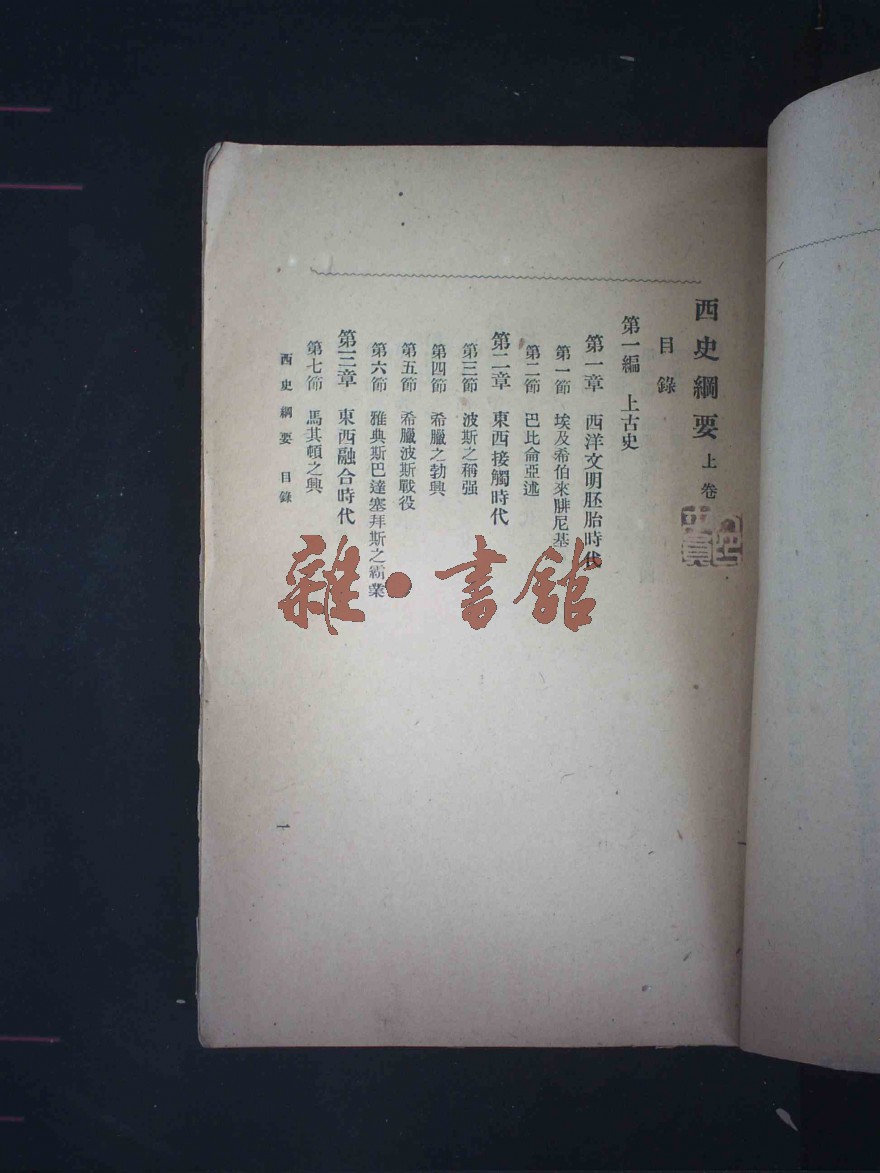 西史綱要 上卷
目錄
第一編 上古史
第一章 西洋文明胚胎時代
第一節 埃及希伯來腓尼基
第二節 巴比侖亞述
第二章 東西接觸時代
第三節 波斯之稱强
第四節 希臘之勃興
第五節 希臘波斯戰役
第六節 雅典斯巴達塞拜斯之霸業
第三章 東西融合時代
第七節 馬其頓之興
西史綱要 目錄
一
雜·書館